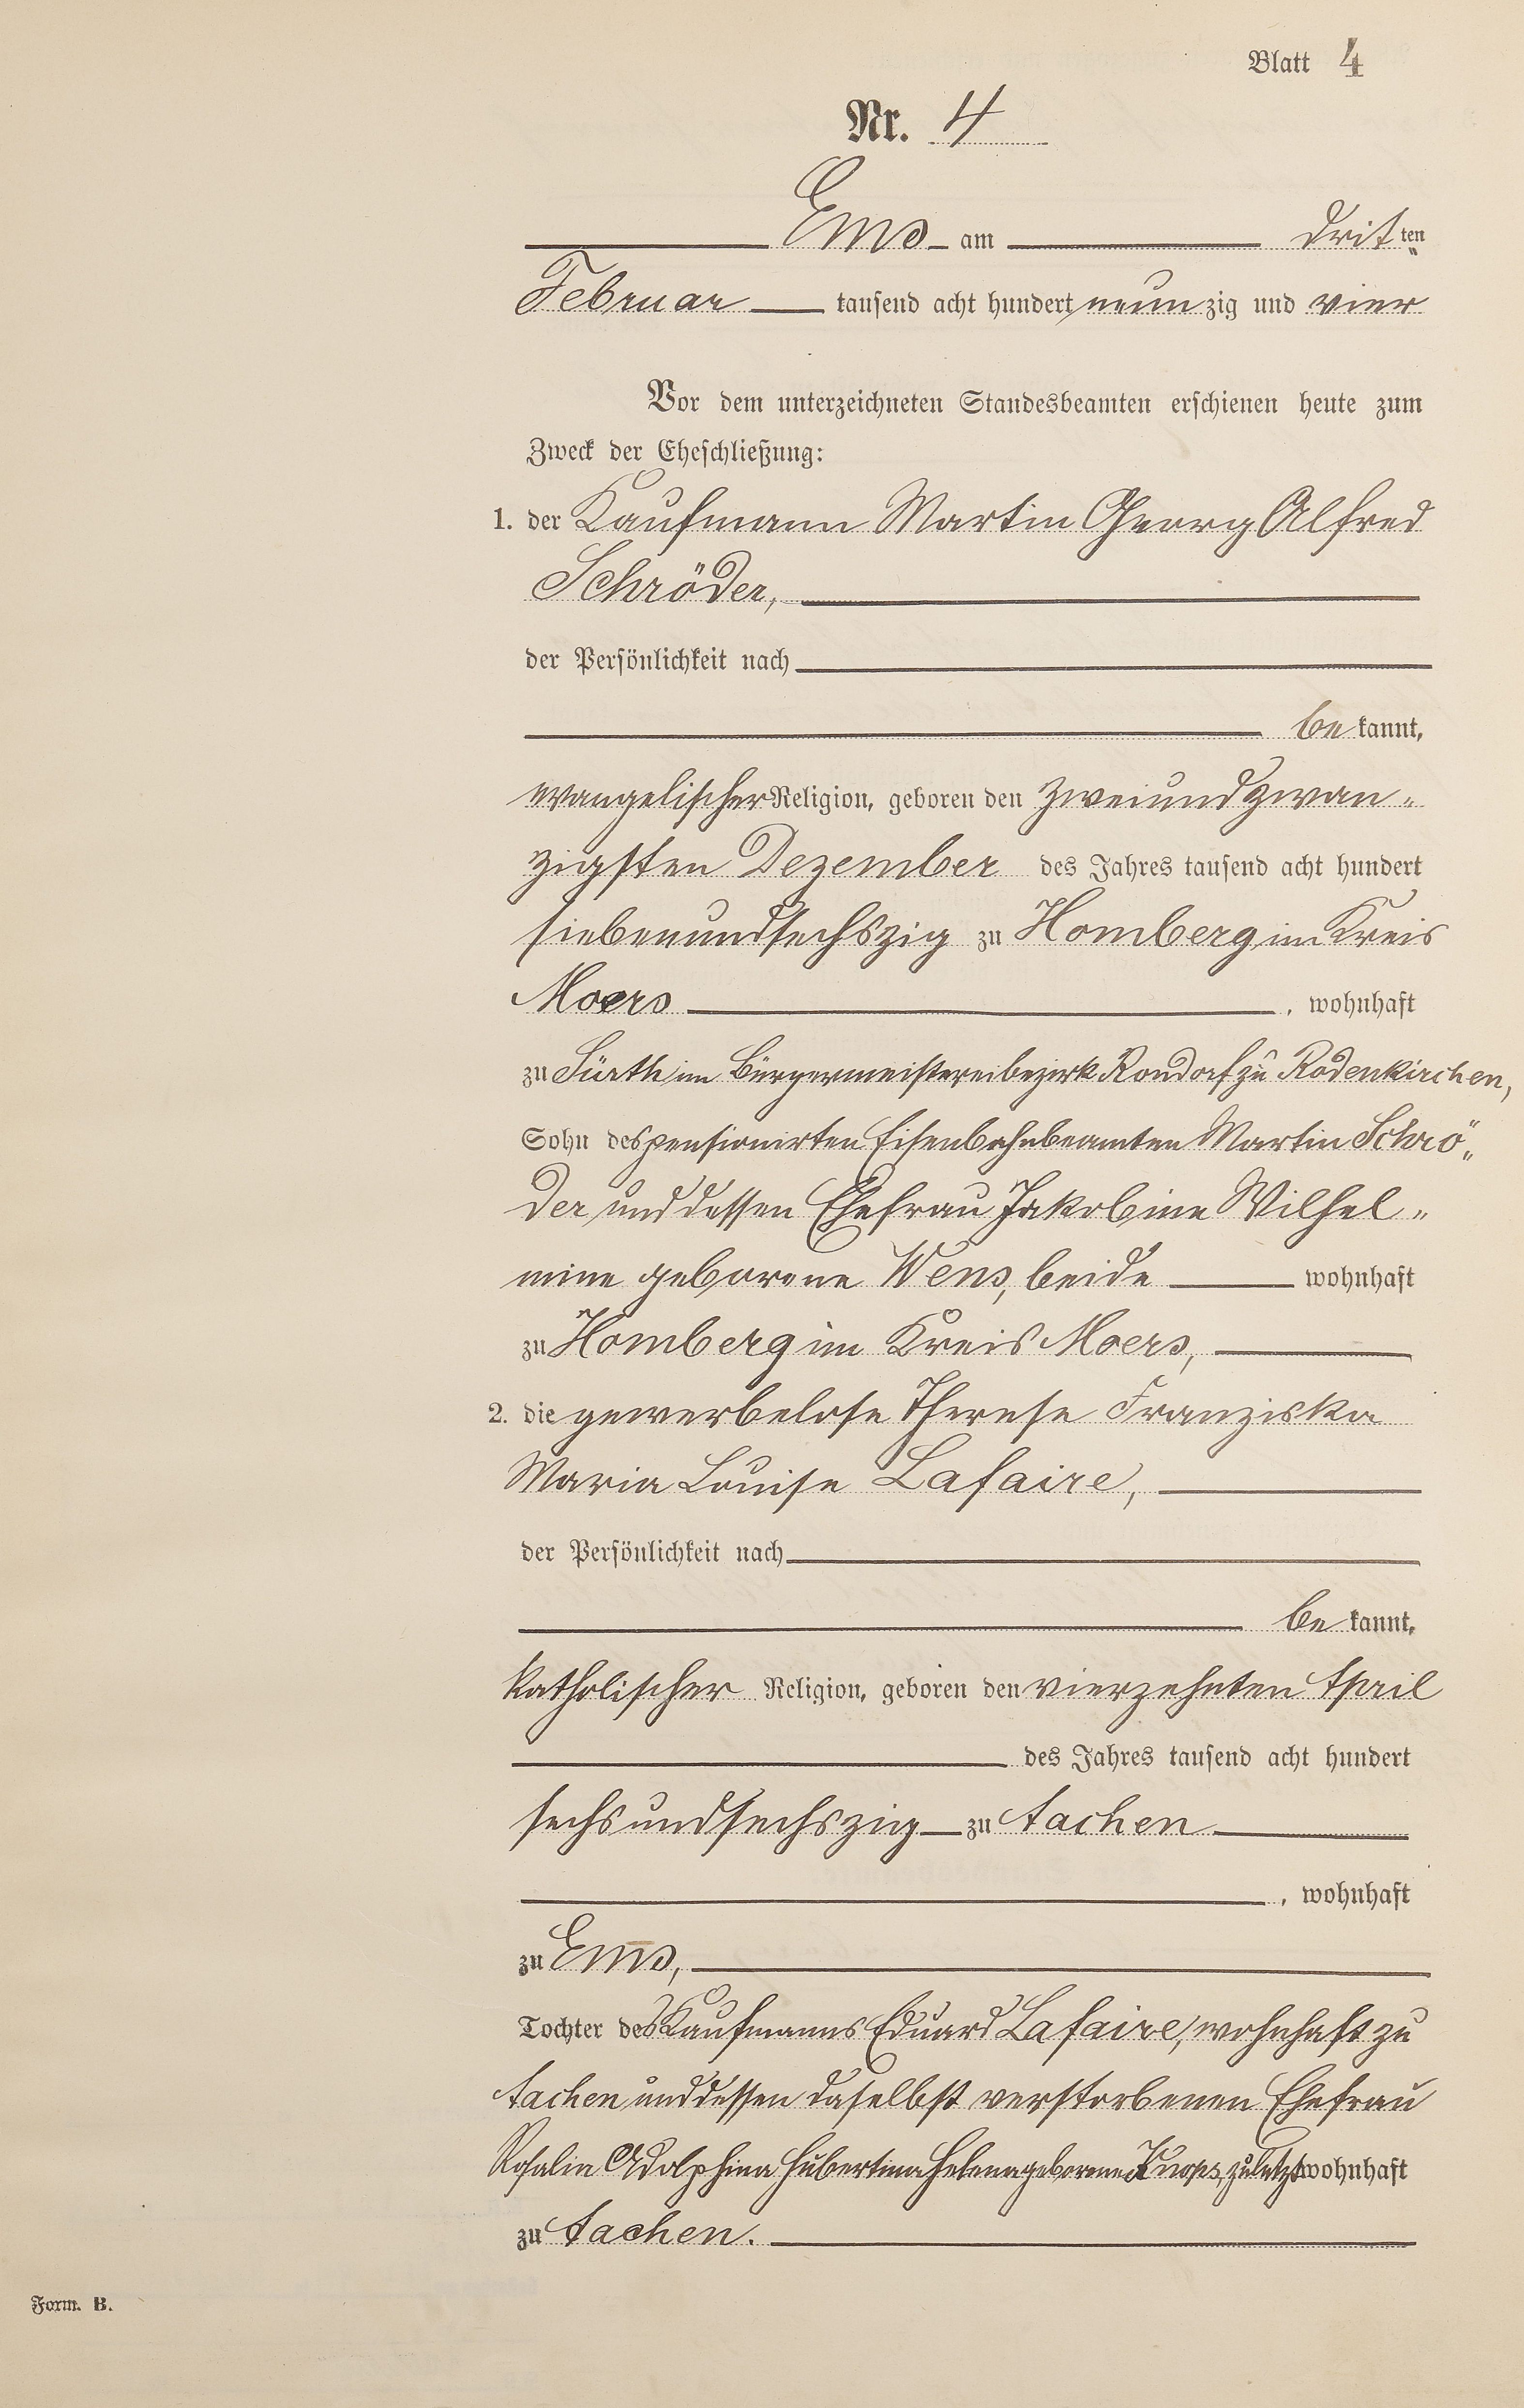 Blatt 4
Nr. 4
Ems am dritten
Februar tausend acht hundert neunzig und vier
Vor dem unterzeichneten Standesbeamten erschienen heute zum
Zweck der Eheschließung:
1. der Kaufmann Martin Georg Alfred
Schröder,
der Persönlichkeit nach
bekannt,
evangelischer Religion, geboren den zweiundzwan-
zigsten Dezember des Jahres tausend acht hundert
siebenundsechszig zu Homberg im Kreis
Moers, wohnhaft
zu Sürth im Bürgermeistereibezirk Rondorf zu Rodenkirchen,
Sohn des pensionirten Eisenbahnbeamten Martin Schrö-
der und dessen Ehefrau Jakobine Wilhel-
mine geborene Wens, beide wohnhaft
zu Homberg im Kreis Moers,
2. die gewerbelose Therese Franziska
Maria Louise Lafaire,
der Persönlichkeit nach
bekannt,
katholischer Religion, geboren den vierzehnten April
des Jahres tausend acht hundert
sechsundsechszig zu Aachen
, wohnhaft
zu Ems,
Tochter des Kaufmanns Eduard Lafaire, wohnhaft zu
Aachen und dessen daselbst verstorbenen Ehefrau
Rosalie Adolphina Hubertina Helena geborene Knops, zuletzt wohnhaft
zu Aachen.
Form. B.